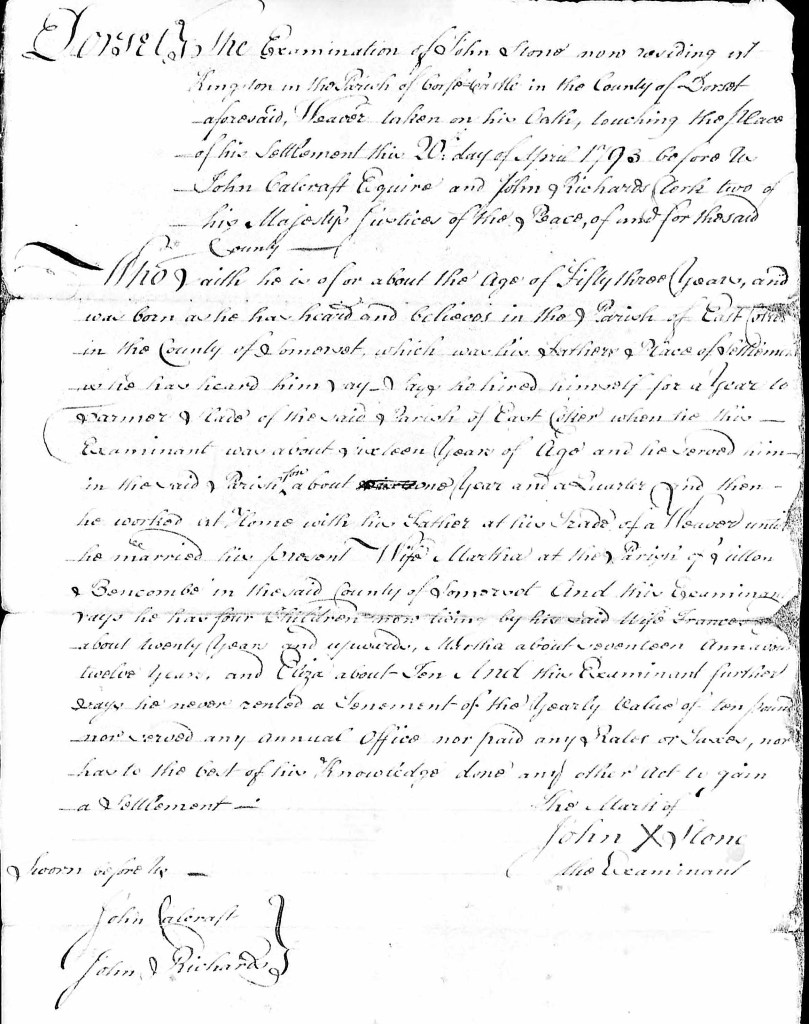 Dorset} The Examination of John Stone now residing at
Kingston in the Parish of Corfe Castle in the County of Dorset
aforesaid, Weaver taken on his Oath, touching the Place
of his Settlement this 20: day of April 1793 before Us
John Calcraft Equire and John Richards Clerk two of
his Majestys Justices of the Peace, of and for the said
County
Who Saith he is of or about the Age of Fifty three Years, and
was born as he has heard and believes in the Parish of East
in the County of Somerset, which was his Fathers Place of Settlement
as he has heard him say Says he hired himself for a Year to
Farmer Slade of the said Parish of East Coker when he this
Examinant was about Sixteen Years of Age and he served him
in the said Parish for about one Year and a Quarter And then
he worked at Home with his Father at his Trade of a Weaver until
he married his present Wife Martha at the Parish of
in the said County of Somerset And this Examinant
says he has four Children now living by his said Wife Frances
about twenty Years and upwards, Martha about seventeen Ann about
twelve Years, and Eliza about Ten And this Examinant further
Says he never rented a Tenement of the Yearly Value of ten pounds
nor served any annual Office nor paid any Rates or Taxes, nor
has to the best of his Knowledge done any other Act to gain
a Settlement
The Mark of
John X Stone
the Examinant
Sworn before Us
John Calcraft
John Richards